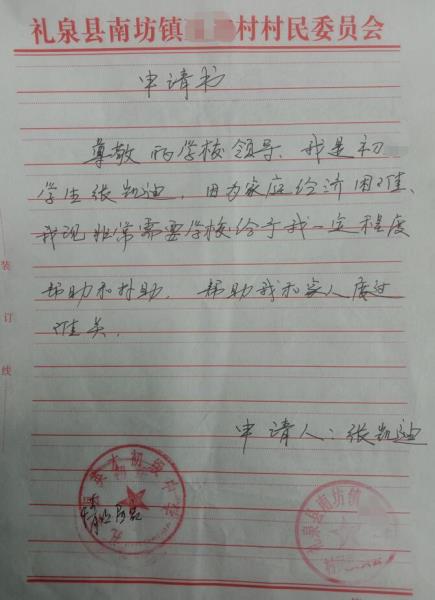 礼泉县南坊镇村村民委员会
申请书
尊敬的学校领导、我是初
学生张凯迪，因为家庭经济困难、
我现非常需要学校给予我一定程度
帮助和补助，帮助我和家人度过
难关．
申请人：张凯迪
装
订
线
礼泉县南坊镇